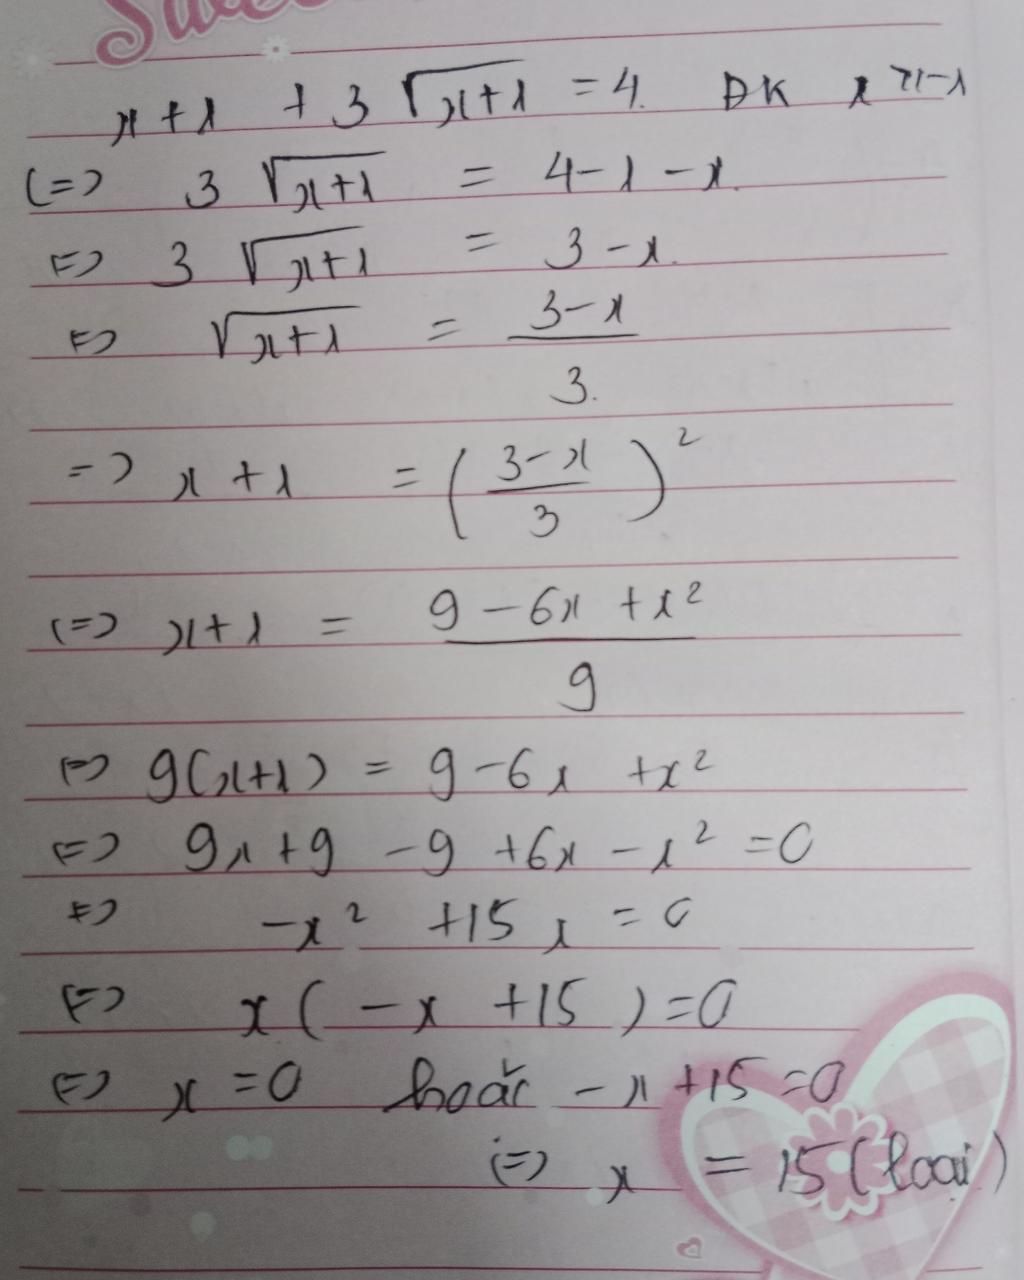 x + 1 + 3 √(x+1) = 4. ĐK x ≥ -1
(=) 3 √(x+1) = 4 - 1 - x.
(=) 3 √(x+1) = 3 - x.
(=) √(x+1) = (3 - x)/3.
=> x + 1 = ((3 - x)/3)²
(=) x + 1 = (9 - 6x + x²)/9
(=) 9(x+1) = 9 - 6x + x²
(=) 9x + 9 - 9 + 6x - x² = 0
(=) -x² + 15x = 0
(=) x( -x + 15 ) = 0
(=) x = 0 hoặc - x + 15 = 0
(=) x = 15 (loại)